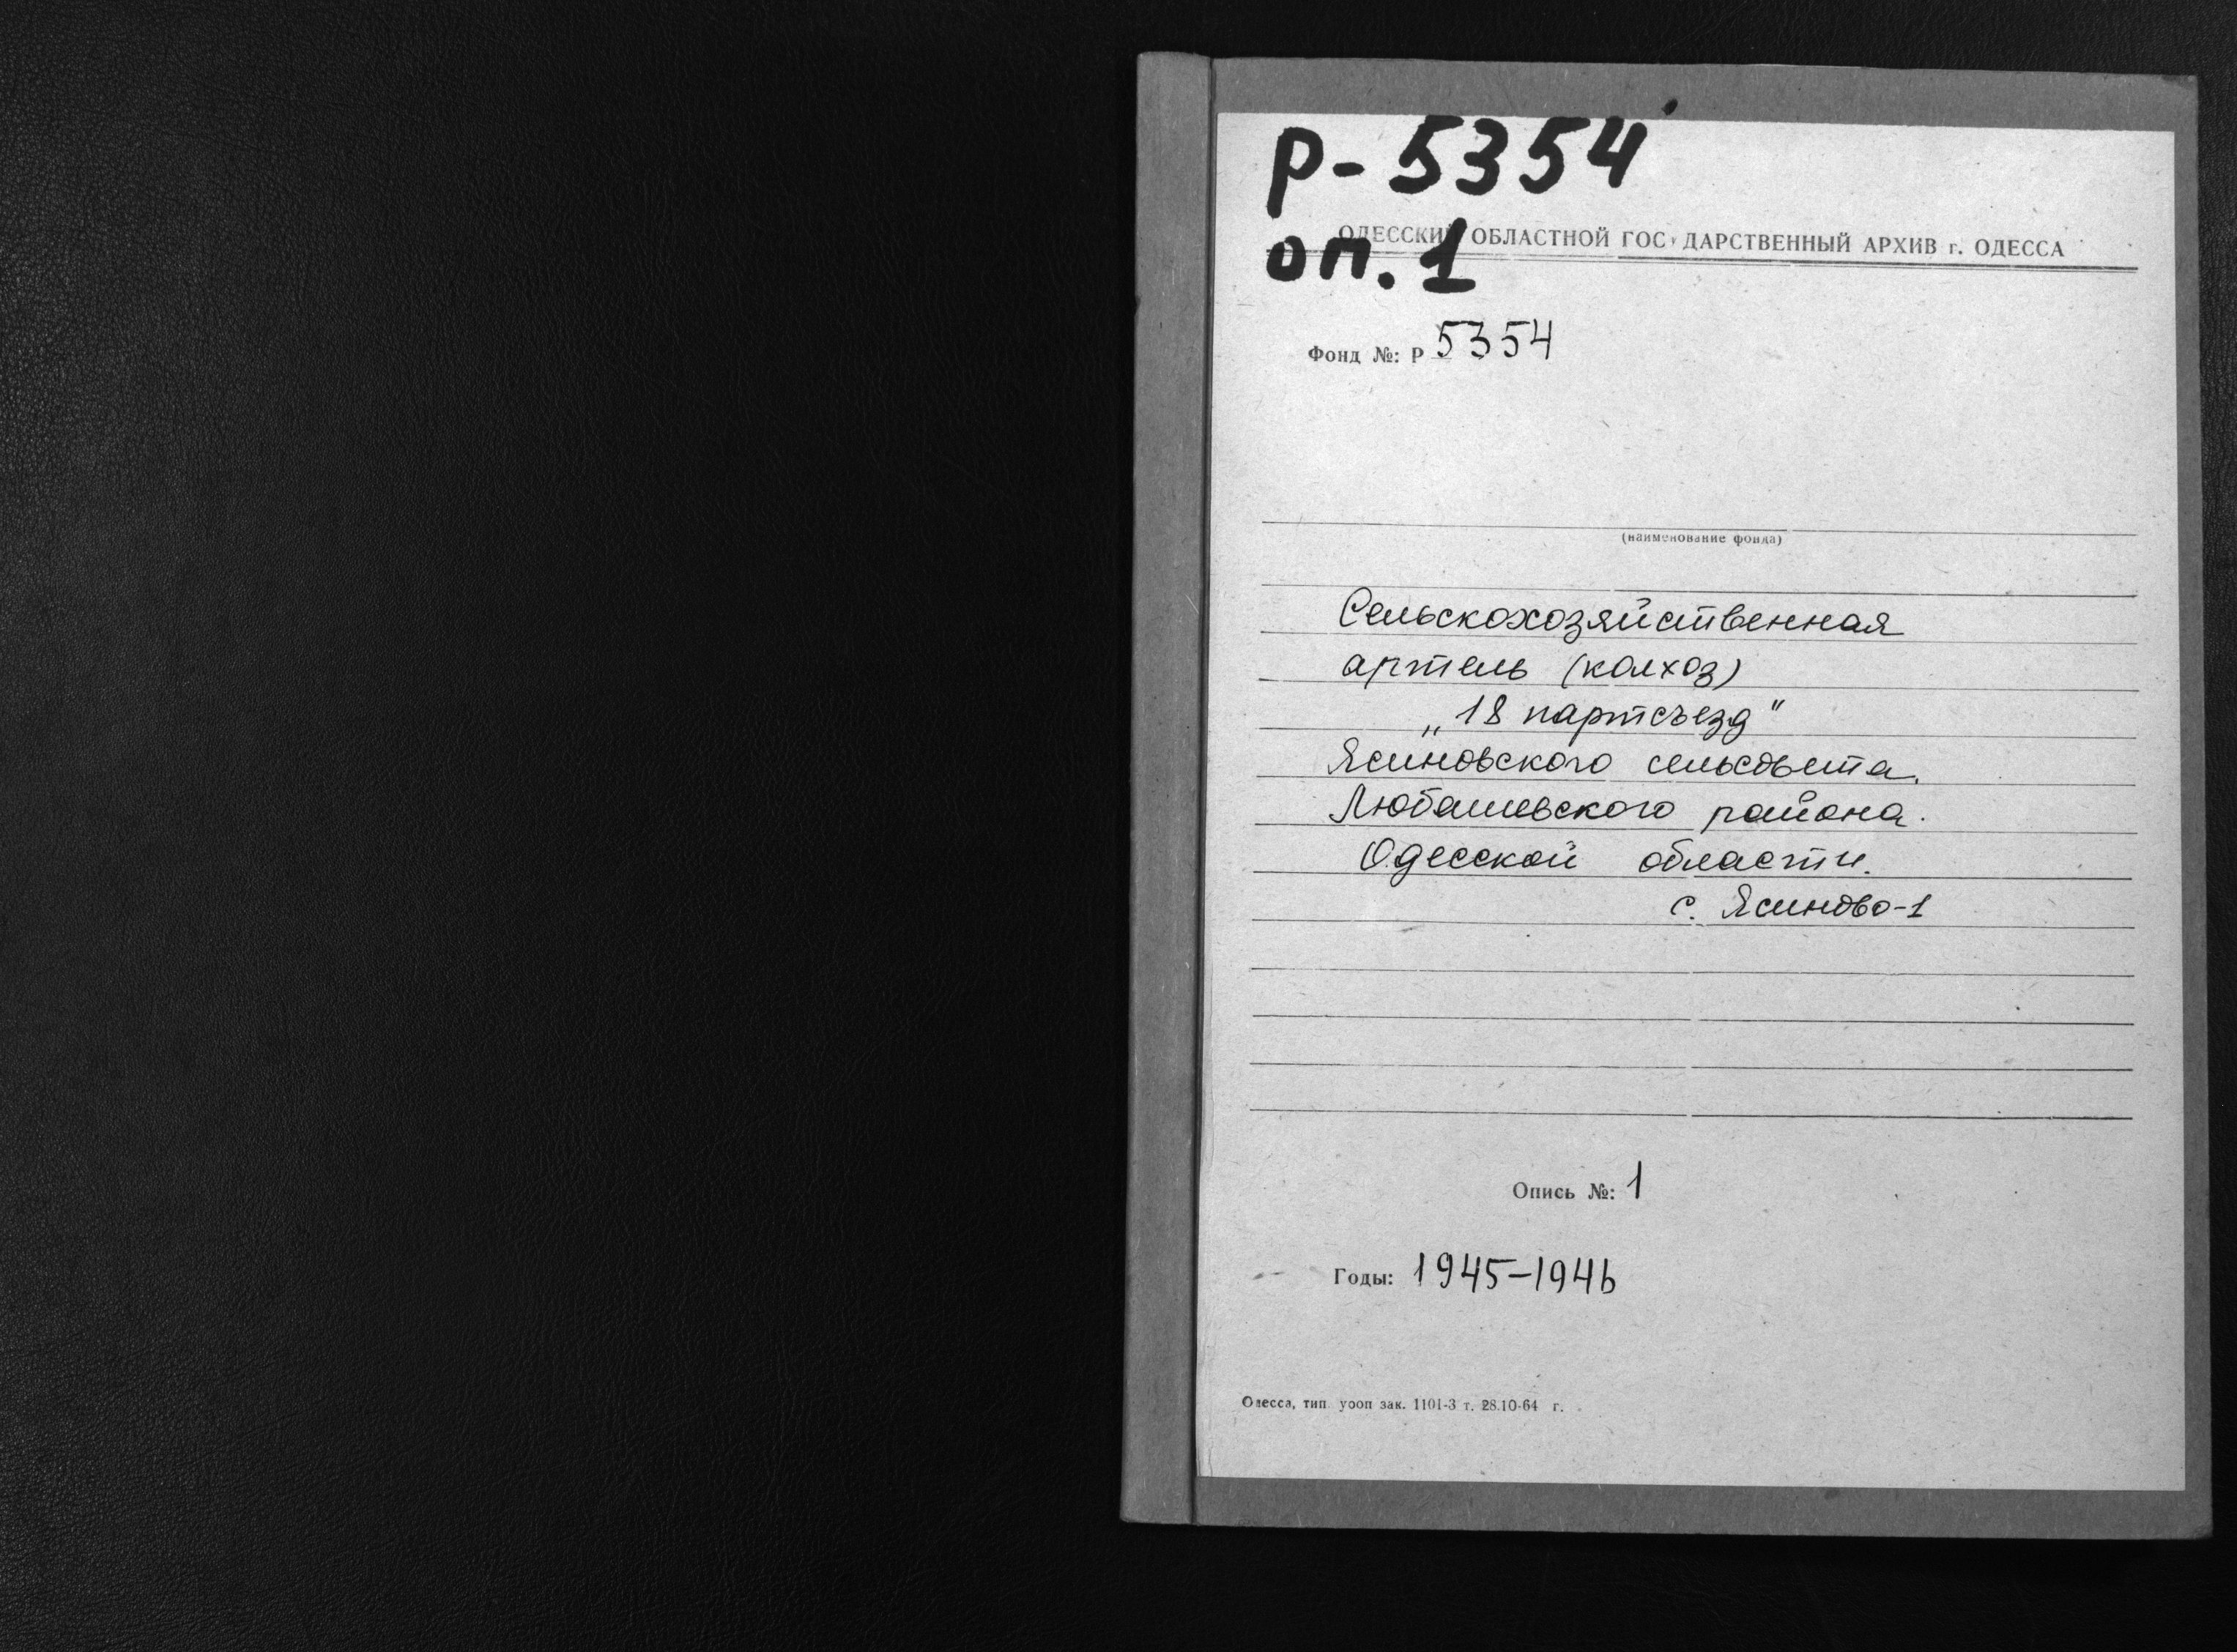 Р-5354
оп. 1
ОДЕССКИЙ ОБЛАСТНОЙ ГОСУДАРСТВЕННЫЙ АРХИВ г. ОДЕССА
Фонд №: Р 5354
(наименование фонда)
Сельскохозяйственная
артель (колхоз)
„18 партсъезд"
Ясиновского сельсовета.
Любашевского района.
Одесской области.
с. Ясиново-1
Опись №: 1
Годы: 1945-1946
Одесса, тип. уооп зак. 1101-3 т. 28.10-64 г.